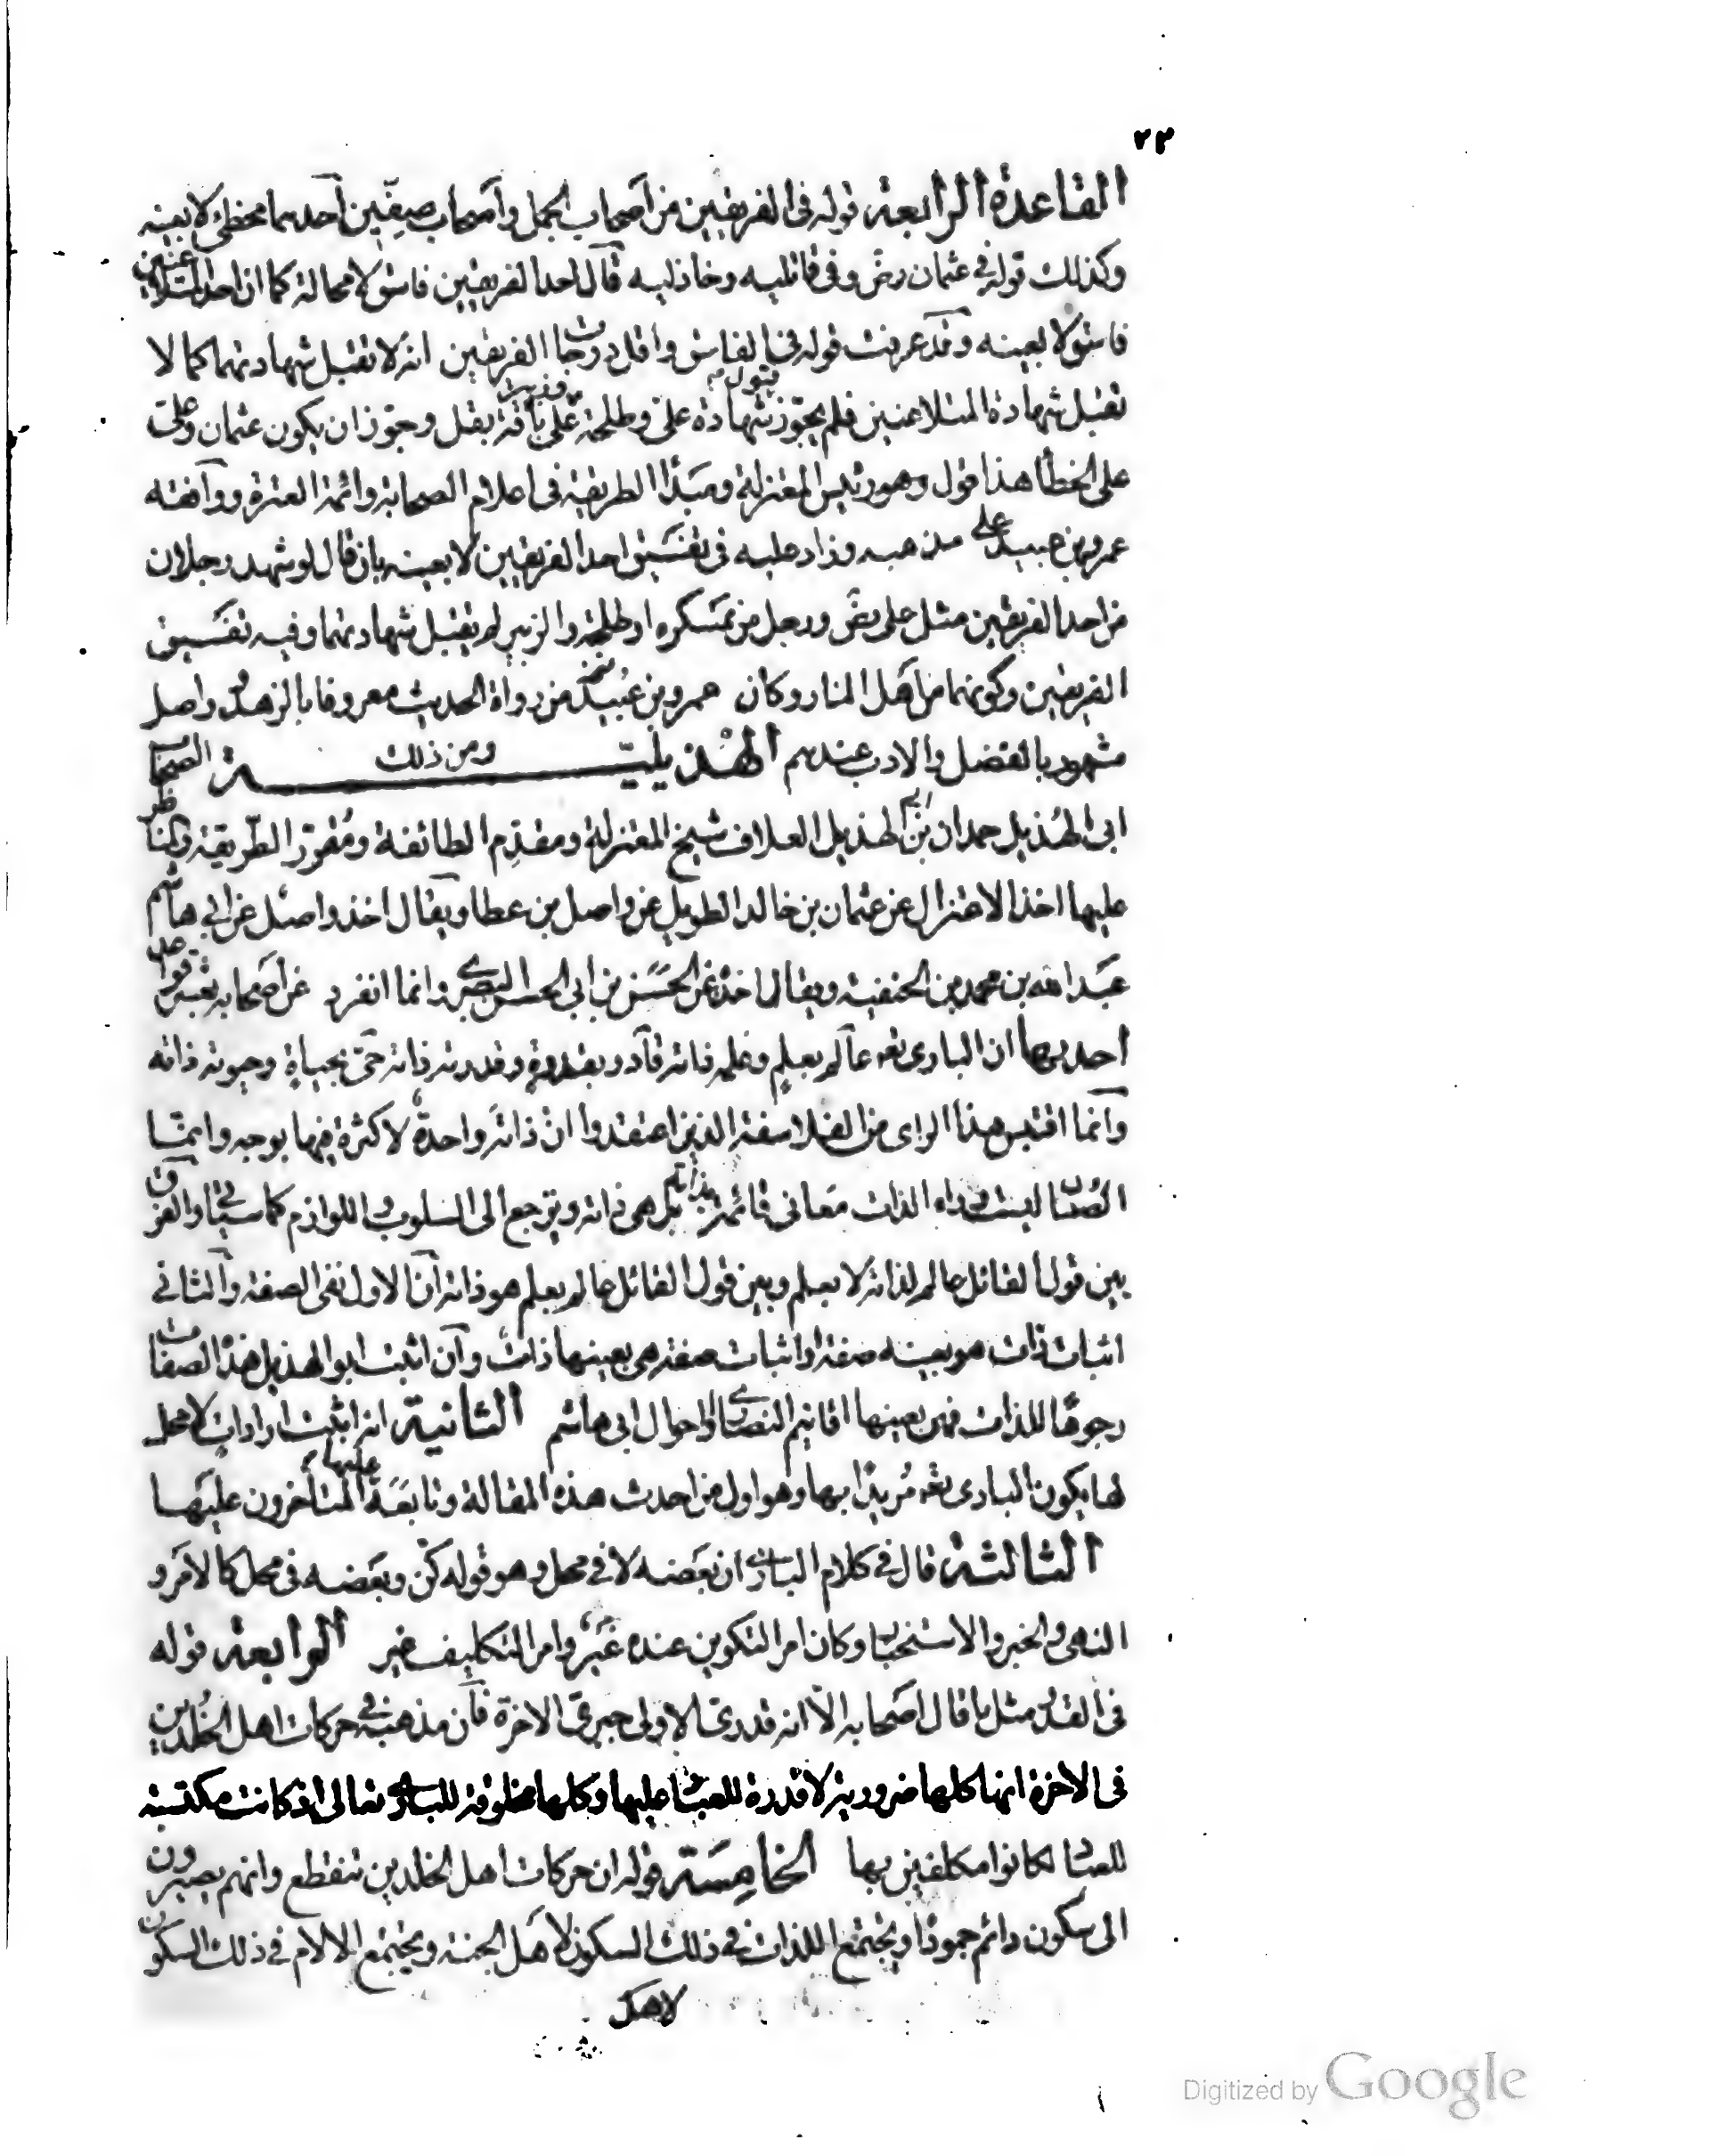 ٢٣
القاعدة الرابعة قوله في الفريقين من أصحاب الجمل وأصحاب صفّين أحدهما مخطئ لا بعينه
وكذلك قوله في عثمان رض وفي قاتليه وخاذليه قال احد الفريقين فاسق لا محالة كما ان احد المتلاعنين
فاسق لا بعينه وقد عرفت قوله في الفاسق واقل درجات الفريقين انه لا تقبل شهادتهما كما لا
تقبل شهادة المتلاعنين فلم يجوّز قبول شهادة علي وطلحة وزبير على باقة بقل وجوّز ان يكون عثمان وعلي
على الخطأ هذا قول وهو رئيس المعتزلة ومبدأ الطريقة في اعلام الصحابة وائمة العترة ووافقه
عمرو بن عبيد على مذهبه وزاد عليه في تفسيق احد الفريقين لا بعينه بان قال لو شهد رجلان
من احد الفريقين مثل علي رض ورجل من عسكره او طلحة والزبير لم يقبل شهادتهما وفيه تفسيق
الفريقين وكونهما من أهل النار وكان عمرو بن عبيد من رواة الحديث معروفا بالزهد وواصل
مشهور بالفضل والادب عندهم الهذيليّة ومن ذلك اصحاب
ابي الهذيل حمدان بن ابي الهذيل العلاف شيخ المعتزلة ومقدّم الطائفة ومقرّر الطّريقة والمناظر
عليها اخذ الاعتزال عن عثمان بن خالد الطويل عن واصل بن عطا ويقال اخذ واصل عن ابي هاشم
عبد الله بن محمد بن الحنفية ويقال اخذه عن الحسن بن ابي الحسن البصري وانما انفرد عن أصحابه بعشر قواعد
احديها ان الباري تعه عالم بعلم وعلمه ذاته قادر بقدرة وقدرته ذاته حيّ بحياة وحيوته ذاته
وانما اقتبس هذا الراى من الفلاسفة الذين اعتقدوا انّ ذاته واحدة لا كثرة فيها بوجه وانما
الصفات ليست وراء الذات معاني قائمة بذاته بل هي ذاته وترجع الى السلوب واللوازم كما سيأتي والفرق
بين قول القائل عالم لذاته لا بعلم وبين قول القائل عالم بعلم هو ذاته ان الاول نفى الصفة والثاني
اثبات ذات هو بعينه صفة او اثبات صفة هي بعينها ذات وان اثبت ابو الهذيل هذه الصفات
وجوها للذات فهي بعينها اقانيم النصارى او احوال ابي هاشم الثانية انه اثبت ارادات لا محل
لها يكون الباري تعه مُريدًا بها وهو اول من احدث هذه المقالة وتابعه عليها المتأخرون عليها
الثالثة قال في كلام الباري ان بعضه لا في محل وهو قوله كن وبعضه في محل كالامر و
النهى والخبر والاستخبار وكان امر التكوين عنده غير وامر التكليف غير الرابعة قوله
في القدر مثل ما قال اصحابه الاّ انه قدري الاولى جبري الاخرة فان مذهبه في حركات اهل الخلدين
في الاخرة انها كلها ضرورية لا قدرة للعباد عليها وكلها مخلوقة للباري تعالى اذ كانت مكتسبة
للعباد لكانوا مكلفين بها الخامسة قوله ان حركات اهل الخلدين تنقطع وانهم يصيرون
الى سكون دائم جمودًا ويجتمع اللذات في ذلك السكون لاهل الجنة ويجتمع الالام في ذلك السكون
لاهل
Digitized by Google